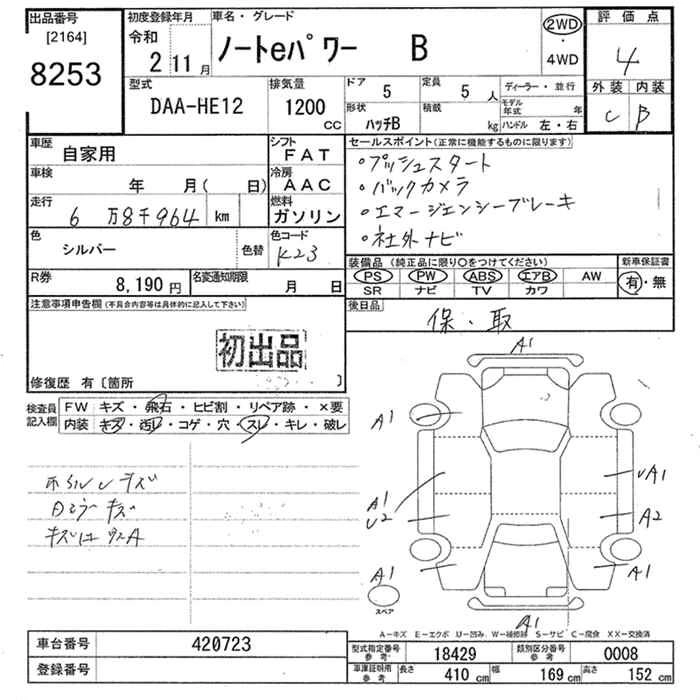 出品番号
[2164]
8253
初度登録年月
令和
2 11月
車名・グレード
ノートeパワー B
2WD
・
4WD
評価点
4
外装 内装
C B
型式
DAA-HE12
排気量
1200
CC
ドア
5
定員
5 人
形状
ハッチB
積載
kg
ディーラー・並行
モデル年式 年
ハンドル 左・右
車歴
自家用
シフト
FAT
車検
年 月( 日)
冷房
AAC
走行
6 万8千964 km
燃料
ガソリン
色
シルバー
色替
色コード
K23
R券
8,190 円
名変通知期限
月 日
セールスポイント(正常に機能するものに限ります)
・プッシュスタート
・バックカメラ
・エマージェンシーブレーキ
・社外ナビ
装備品 (純正品に限り○をつけてください)
PS PW ABS エアB AW
SR ナビ TV カワ
新車保証書
有・無
後日品
保・取
注意事項申告欄(不具合内容等は具体的に記入して下さい)
初出品
修復歴 有〔箇所 〕
検査員記入欄
FW キズ・飛石・ヒビ割・リペア跡・×要
内装 キズ・汚レ・コゲ・穴・スレ・キレ・破レ
キズ
キズ
A1
A1
A1
U2
A1
A1
A2
A1
A1
スペア
A-キズ E-エクボ U-凹み W-補修跡 S-サビ C-腐食 XX-交換済
車台番号
420723
登録番号
型式指定番号
参考
18429
類別区分番号
参考
0008
車庫証明用
参考
長さ 410 cm
幅 169 cm
高さ 152 cm